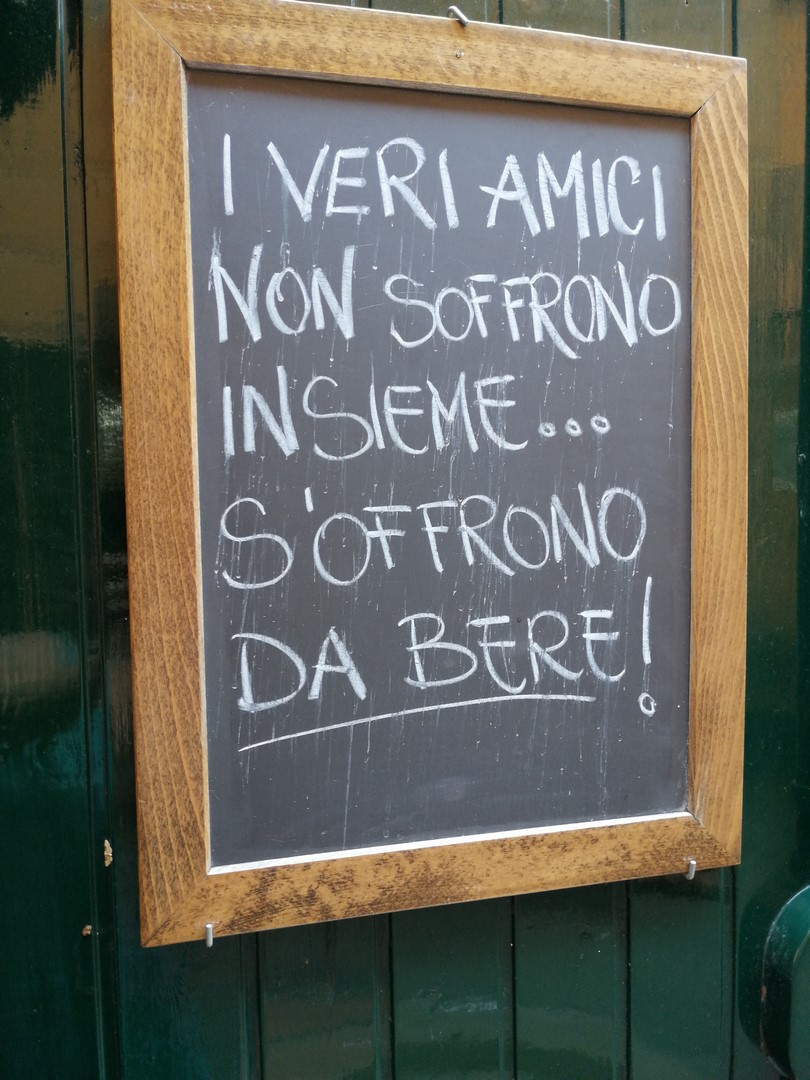 I VERI AMICI
NON SOFFRONO
INSIEME...
S'OFFRONO
DA BERE!